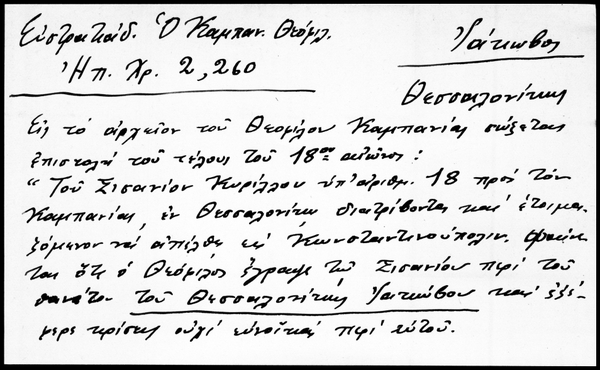 Εὐστρατιάδ. Ὁ Καμπαν. Θεόφιλ.
Ἠπ. Χρ. 2, 260
Ἰάκωβος
Θεσσαλονίκης
Εἰς τὸ ἀρχεῖον τοῦ Θεοφίλου Καμπανίας σώζεται
ἐπιστολὴ τοῦ τέλους τοῦ 18ου αἰῶνος:
"Τοῦ Σισανίου Κυρίλλου ὑπ' ἀριθμ. 18 πρὸς τὸν
Καμπανίας, ἐν Θεσσαλονίκῃ διατρίβοντα καὶ ἑτοιμα-
ζόμενον νὰ ἀπέλθῃ εἰς Κωνσταντινούπολιν. Φαίνε-
ται ὅτι ὁ Θεόφιλος ἔγραψε τῷ Σισανίου περὶ τοῦ
θανάτου τοῦ Θεσσαλονίκης Ἰακώβου καὶ ἐξέ-
φερε κρίσεις οὐχὶ εὐνοϊκὰς περὶ αὐτοῦ.